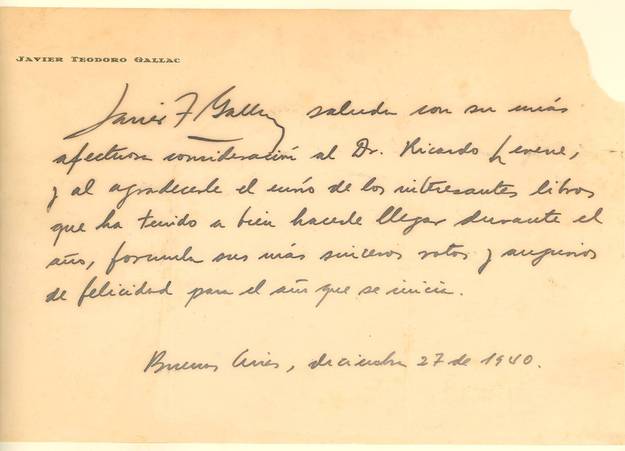 JAVIER TEODORO GALLAC
Javier T Gallac saluda con su más
afectuosa consideración al Dr. Ricardo Levene,
y al agradecerle el envío de los interesantes libros
que ha tenido a bien hacerle llegar durante el
año, formula sus más sinceros votos y augurios
de felicidad para el año que se inicia.
Buenos Aires, diciembre 27 de 1940.